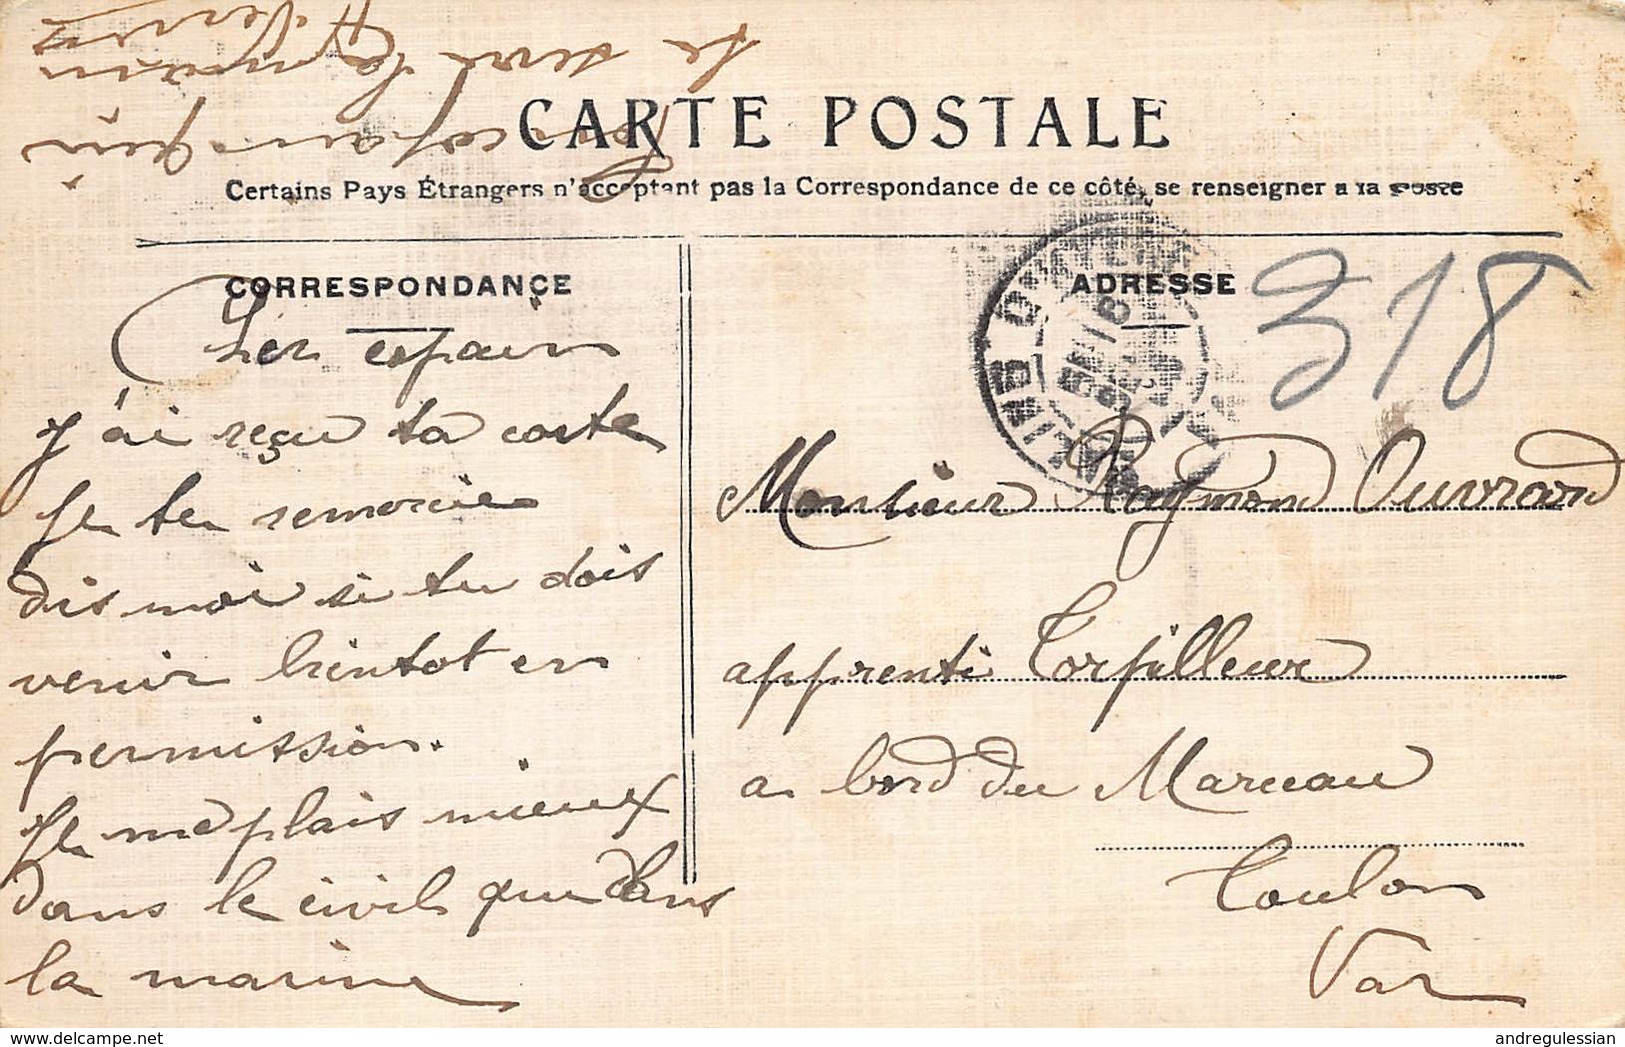 CARTE POSTALE
Certains Pays Étrangers n'acceptant pas la Correspondance de ce côté, se renseigner à la Poste
CORRESPONDANCE
Cher copain
j'ai reçu ta carte
je te remercie
dis moi si tu dois
venir bientot en
permission.
Je me plais mieux
dans le civil que dans
la marine
copain qui
te serre la main
ADRESSE
318
Monsieur Raymond Ouvrard
apprenti Torpilleur
a bord du Marceau
Toulon
Var
andregulessian